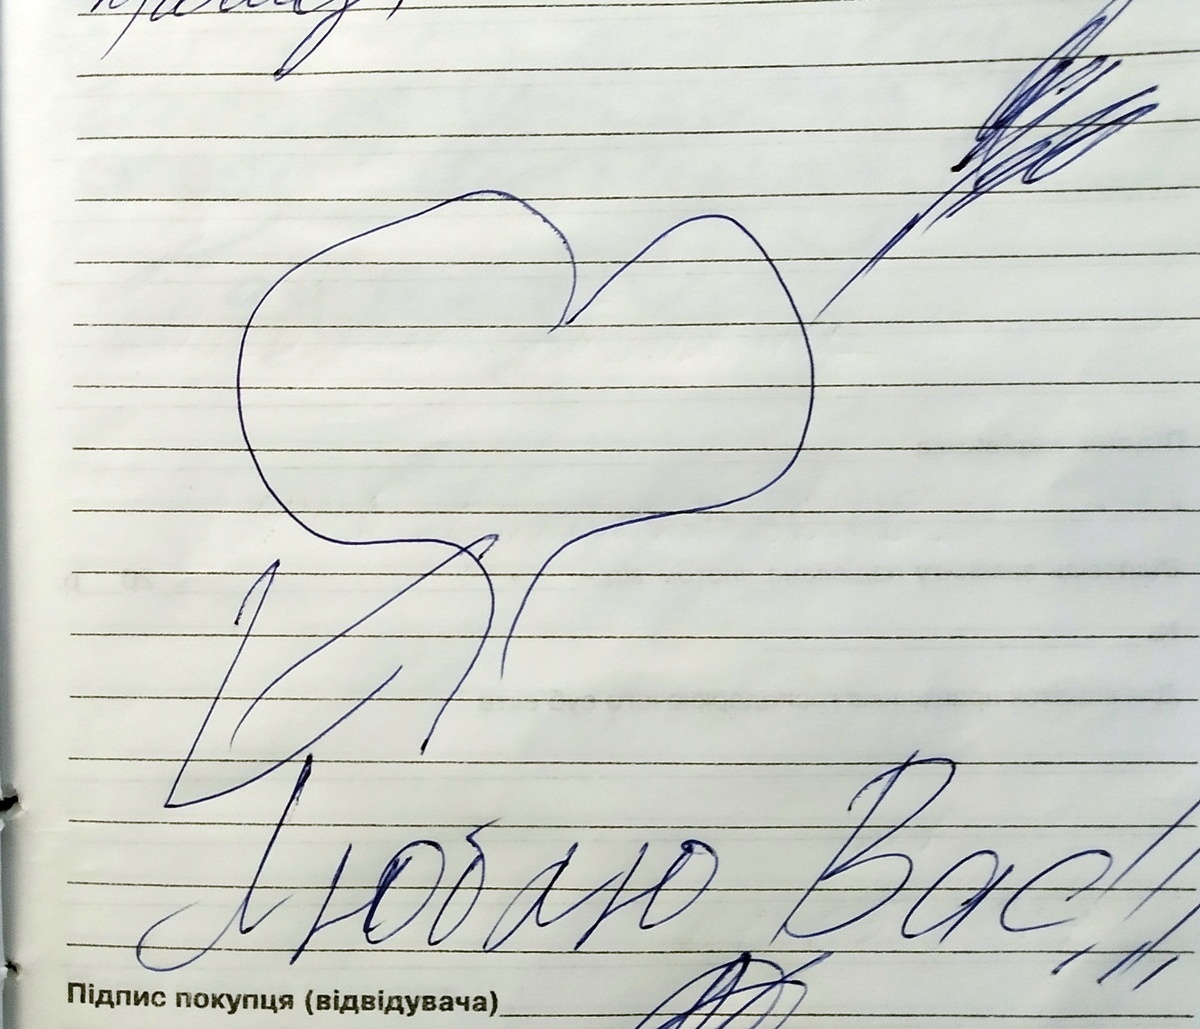 Люблю Вас!!!
Підпис покупця (відвідувача)